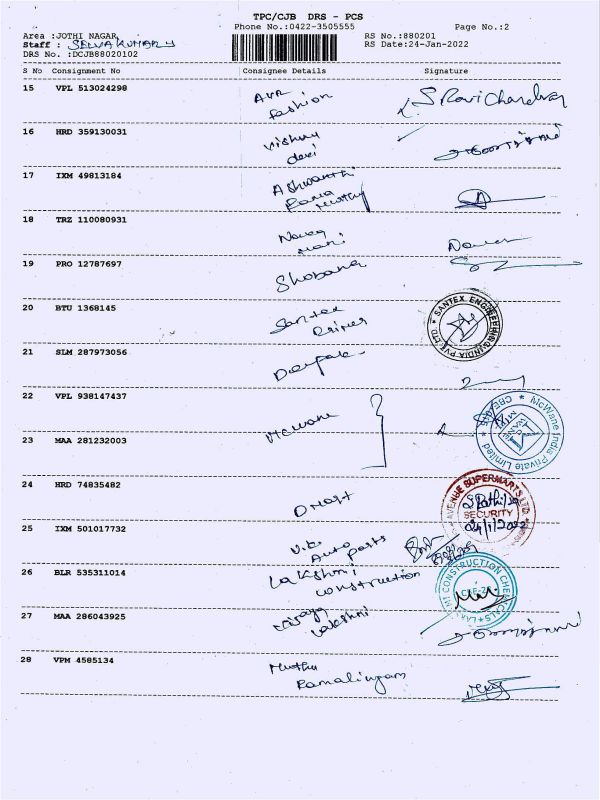 TPC/CJB DRS - PCS
Phone No.:0422-3505555
Page No.:2
Area :JOTHI NAGAR
RS No.:880201
Staff : SELVAKUMAR
RS Date:24-Jan-2022
DRS No. :DCJB88020102
S No Consignment No Consignee Details Signature
15 VPL 513024298 AVR fashion S Ravi Chandran
16 HRD 359130031 Vishnu devi
17 IXM 49813184 Ashwanthi Rama Muthy
18 TRZ 110080931
19 PRO 12787697 Shobana
20 BTU 1368145 Santex
SANTEX ENGINEERING INDIA PVT. LTD.
21 SLM 287973056 Deepak
22 VPL 938147437
McWane India Private Limited
23 MAA 281232003 Mcwane
24 HRD 74835482 DMart
AVENUE SUPERMARTS LTD.
SECURITY
24/1/2022
25 IXM 501017732 Auto parts
26 BLR 535311014 Lakshmi construction
LAKSHMI CONSTRUCTION CHEMICALS
27 MAA 286043925 Vijaya Lakshmi
28 VPM 4585134 Muthu Ramalingam